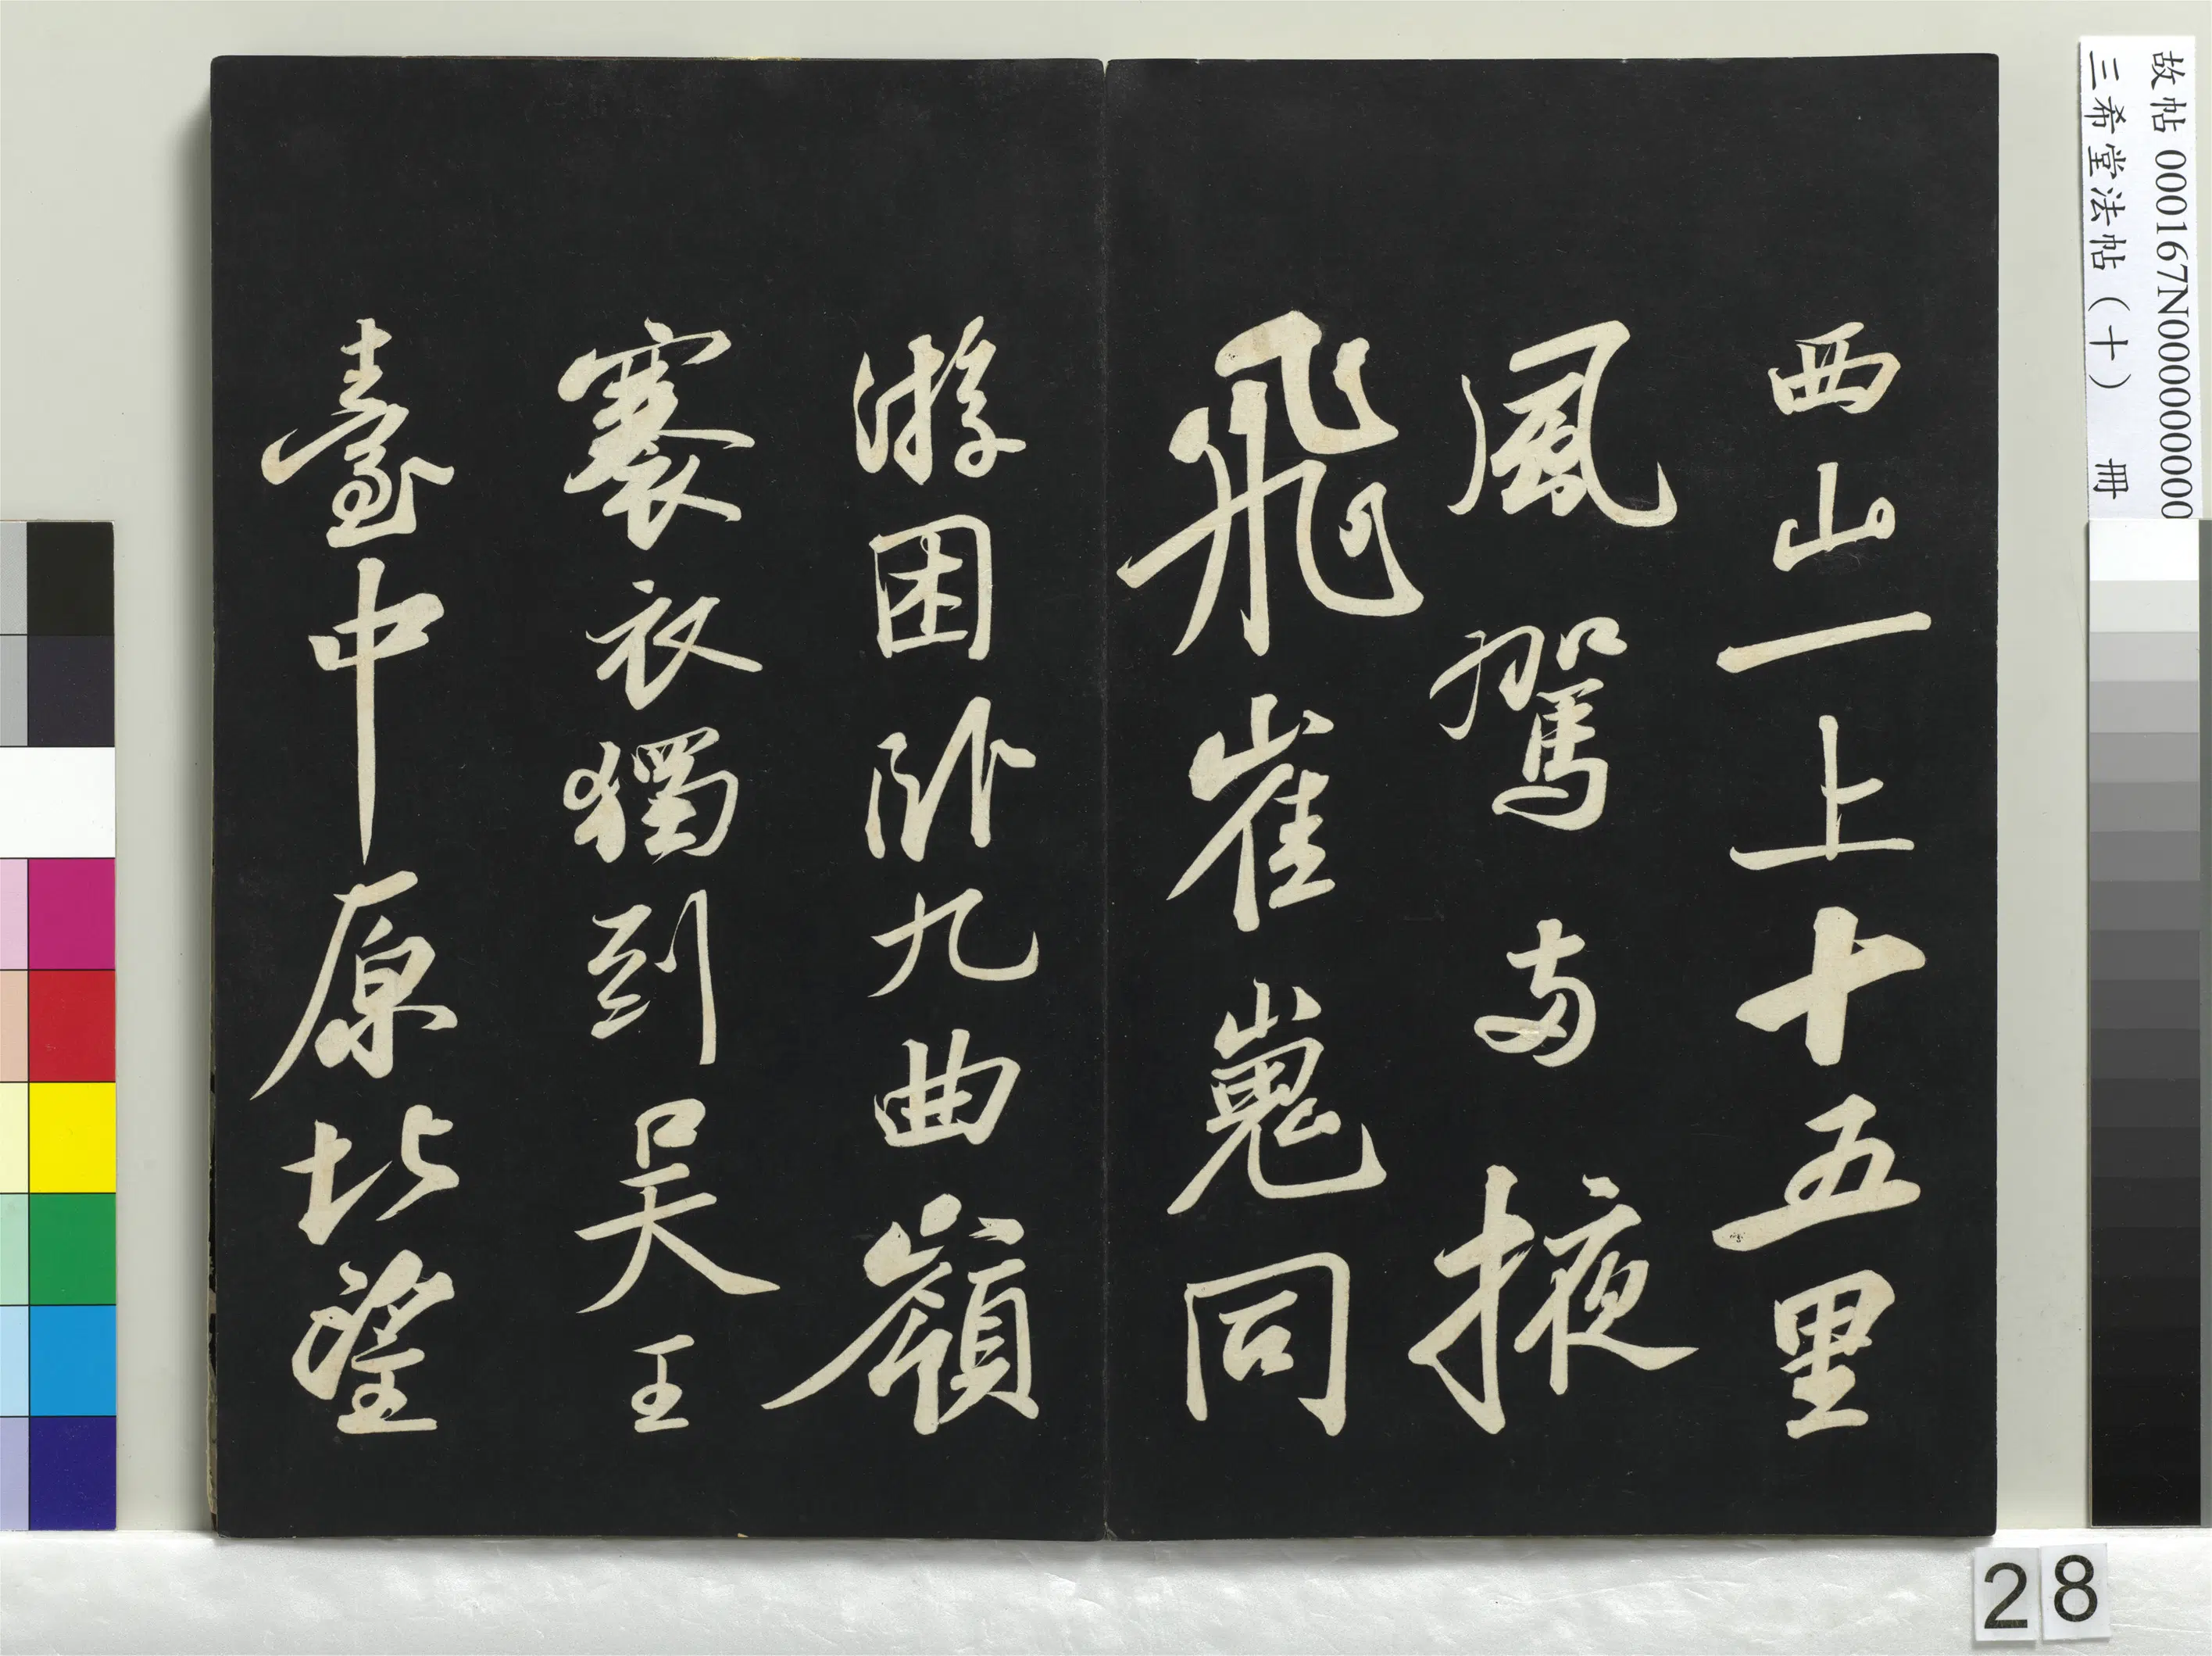 西山一上十五里
風駕兩掖
飛崔嵬同
游困卧九曲嶺
褰衣獨到吴王
臺中原北望
故帖 000167N000000000
三希堂法帖（十） 冊
28